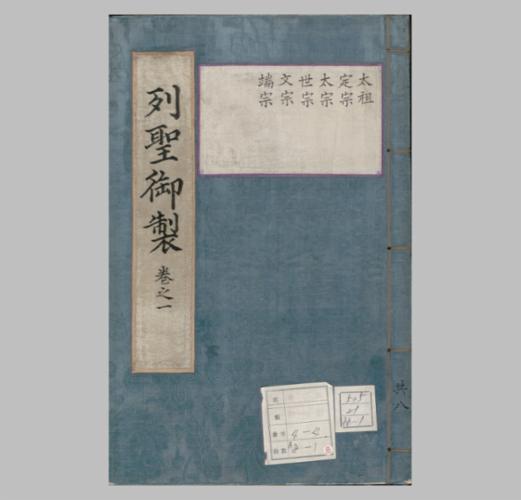 列聖御製 卷之一
太祖
定宗
太宗
世宗
文宗
端宗
共八
4-2